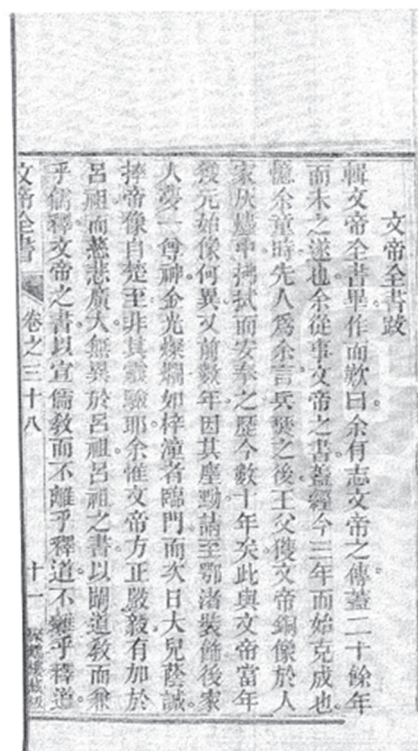 文帝全書跋
輯文帝全書畢作而歎曰余有志文帝之傳蓋二十餘年
而未之遂也余從事文帝之書蓋經今三年而始克成也
憶余童時先人爲余言兵燹之後王父獲文帝銅像於人
家灰燼中拂拭而安奉之歷今數十年矣此與文帝當年
獲元始像何異又前數年因其塵黝請至鄂渚裝飾後家
人夢一尊神金光燦爛如梓潼者臨門而次日大兒蔭誠
捧帝像自楚至非其靈驗耶余惟文帝方正嚴毅有加於
呂祖而慈悲廣大無異於呂祖呂祖之書以闡道教而兼
乎儒釋文帝之書以宣儒教而不離乎釋道不離乎釋道
文帝全書 卷之三十八 十一